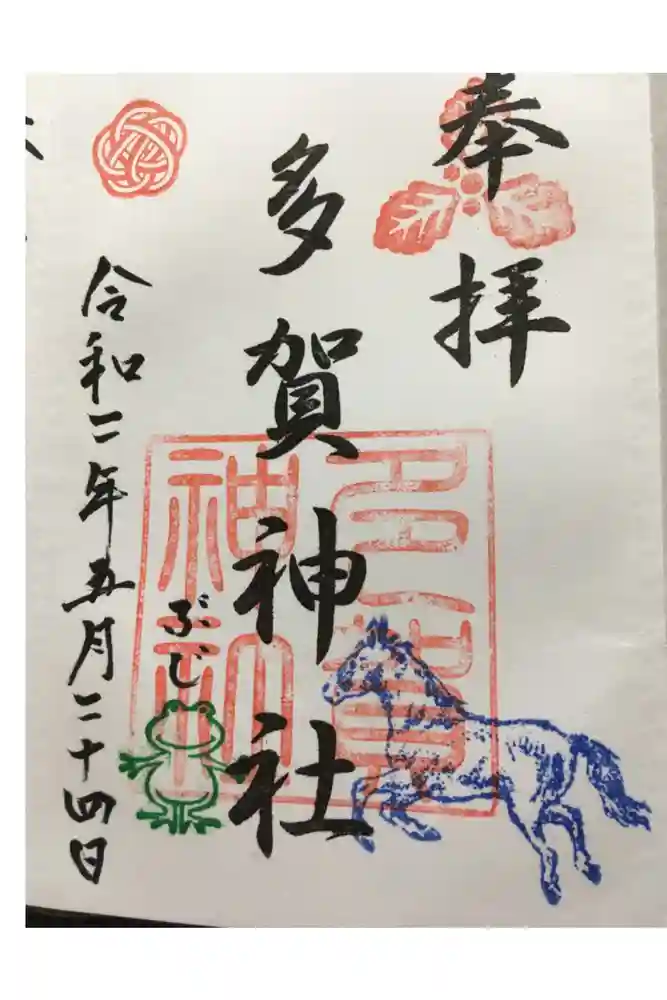 奉拝
多賀神社
多賀神社
ぶじ
令和二年五月二十四日